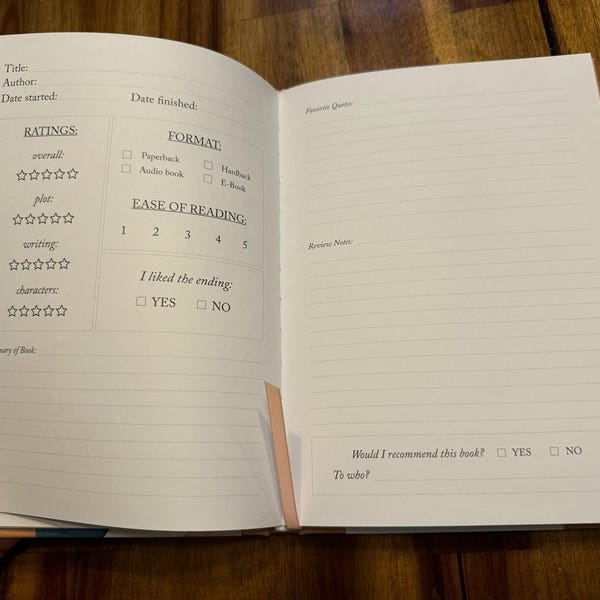 Title:
Author:
Date started: Date finished:
RATINGS:
overall:
plot:
writing:
characters:
FORMAT:
Paperback Hardback
Audio book E-Book
EASE OF READING:
1 2 3 4 5
I liked the ending:
YES NO
of Book:
Favorite Quotes:
Review Notes:
Would I recommend this book? YES NO
To who?